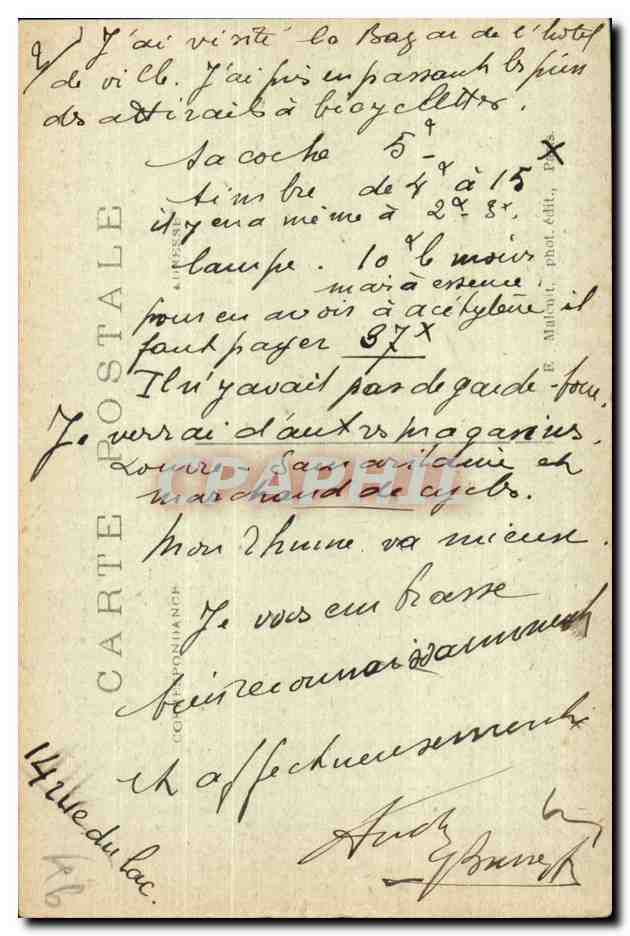 2/ J'ai visité le Bazar de l'hôtel
de ville. J'ai pris en passant les prix
des attirails à bicyclettes.
Sacoche 5 -
timbre de 4 à 15
il y en a même à 2 - 3.
lampe. 10 le moins
mais à essence.
pour en avoir à acétylène il
faut payer 37
Il n'y avait pas de garde-boue.
Je verrai d'autres magasins.
Louvre - Samaritaine et
marchand de cycles.
Mon rhume va mieux.
Je vous embrasse
bien reconnaissamment
et affectueusement
14 rue du lac.
CARTE POSTALE
CORRESPONDANCE
ADRESSE
F. Malcuit, phot. édit., Paris.
CPARAMA